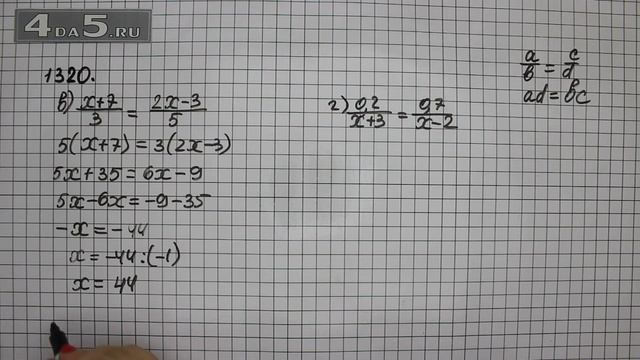 4DA5.RU
1320.
в) x+7/3 = 2x-3/5
5(x+7) = 3(2x-3)
5x+35 = 6x-9
5x-6x = -9-35
-x = -44
x = -44:(-1)
x = 44
г) 0,2/x+3 = 0,7/x-2
a/b = c/d
ad = bc